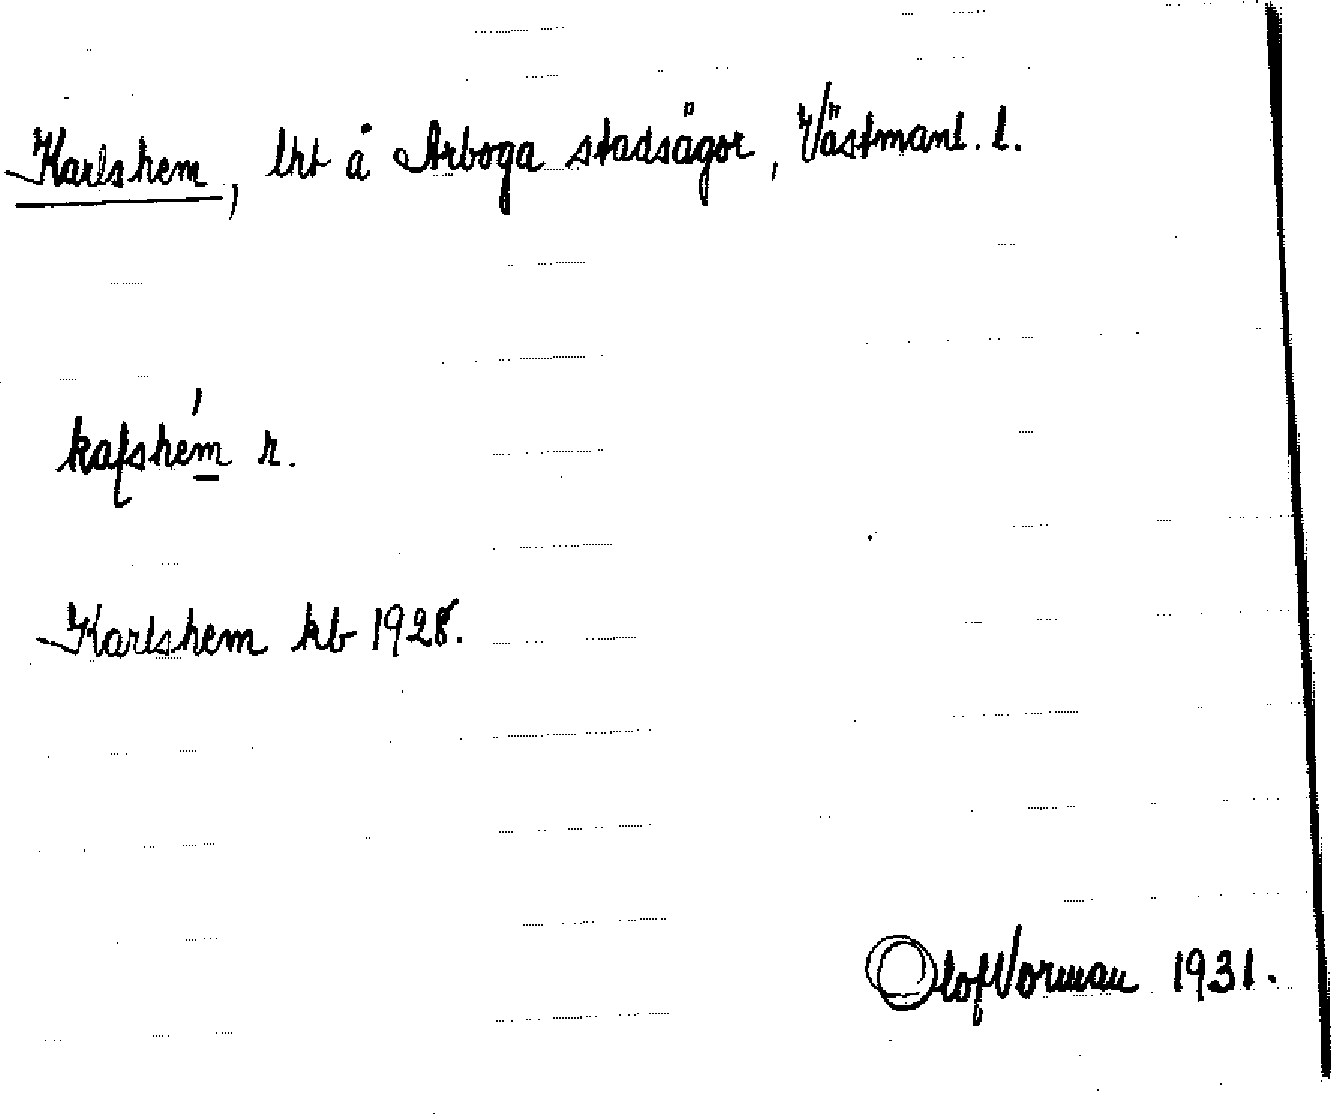 Karlshem, lht å Arboga stadsägor, Västmanl. l.
kaꞎshem r.
Karlshem kb 1928.
Olof Vorman 1931.